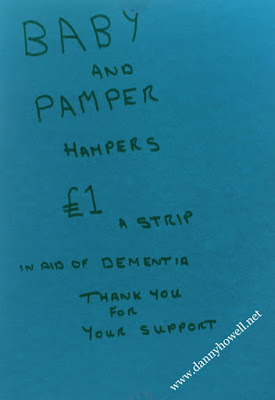 BABY
AND
PAMPER
HAMPERS
£1
A STRIP
IN AID OF DEMENTIA
THANK YOU
FOR
YOUR SUPPORT
www.dannyhowell.net